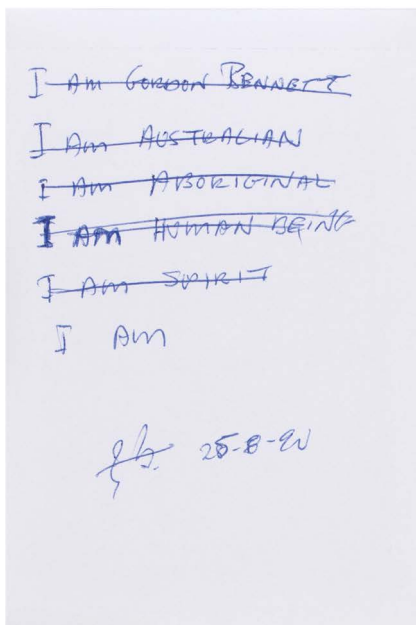 I AM GORDON BENNETT
I AM AUSTRALIAN
I AM ABORIGINAL
I AM HUMAN BEING
I AM SPIRIT
I AM
GB. 25-8-90